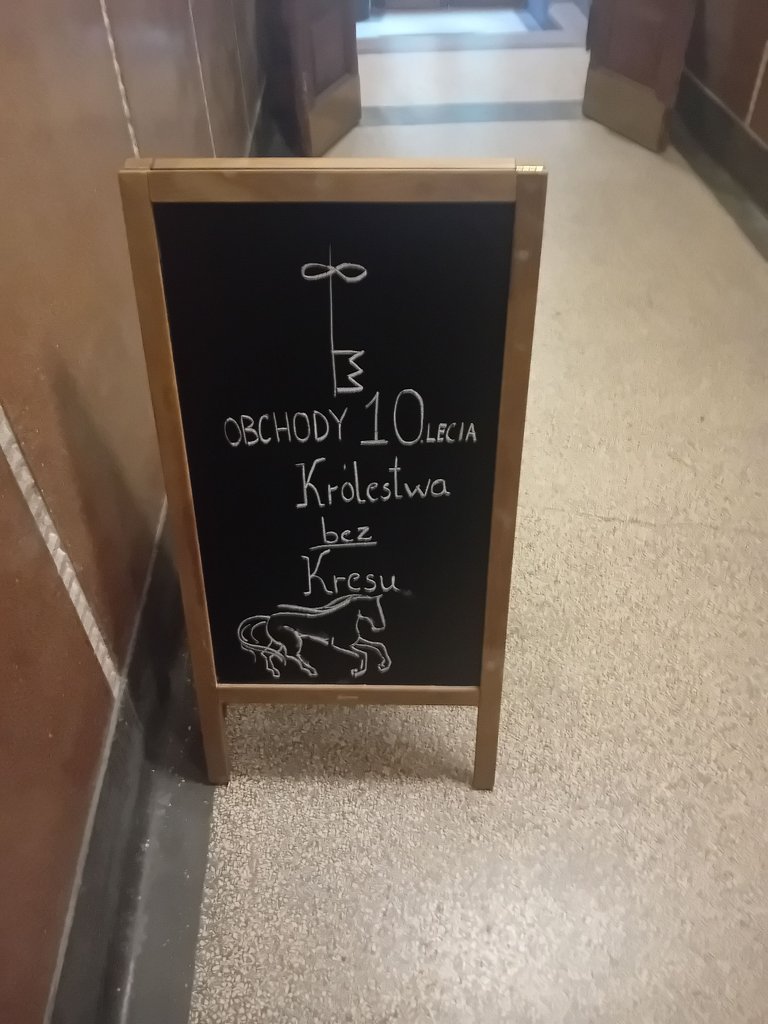 OBCHODY 10.LECIA
Królestwa
bez
Kresu